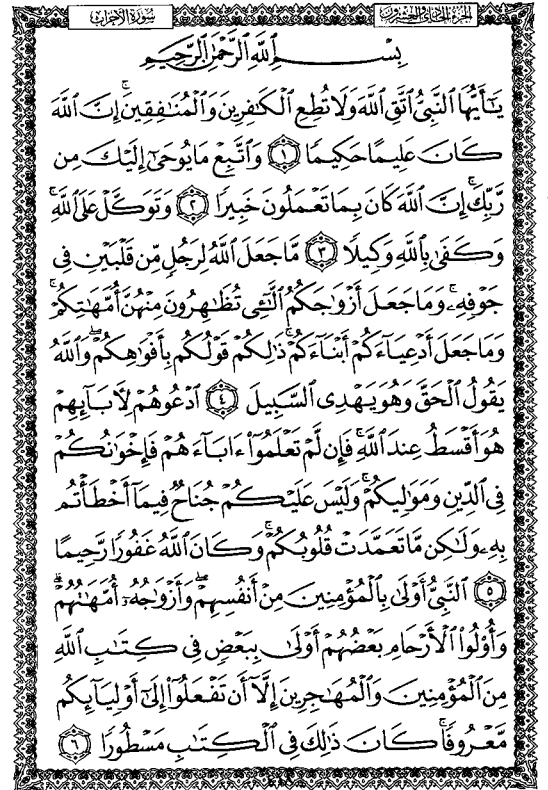 الجزء الحادي والعشرون
سورة الأحزاب
بِسْمِ ٱللَّهِ ٱلرَّحْمَٰنِ ٱلرَّحِيمِ
يَٰٓأَيُّهَا ٱلنَّبِيُّ ٱتَّقِ ٱللَّهَ وَلَا تُطِعِ ٱلْكَٰفِرِينَ وَٱلْمُنَٰفِقِينَۚ إِنَّ ٱللَّهَ
كَانَ عَلِيمًا حَكِيمًا ١ وَٱتَّبِعْ مَا يُوحَىٰٓ إِلَيْكَ مِن
رَّبِّكَۚ إِنَّ ٱللَّهَ كَانَ بِمَا تَعْمَلُونَ خَبِيرًا ٢ وَتَوَكَّلْ عَلَى ٱللَّهِۚ
وَكَفَىٰ بِٱللَّهِ وَكِيلًا ٣ مَّا جَعَلَ ٱللَّهُ لِرَجُلٍ مِّن قَلْبَيْنِ فِي
جَوْفِهِۦۚ وَمَا جَعَلَ أَزْوَٰجَكُمُ ٱلَّٰٓـِٔي تُظَٰهِرُونَ مِنْهُنَّ أُمَّهَٰتِكُمْۚ
وَمَا جَعَلَ أَدْعِيَآءَكُمْ أَبْنَآءَكُمْۚ ذَٰلِكُمْ قَوْلُكُم بِأَفْوَٰهِكُمْۖ وَٱللَّهُ
يَقُولُ ٱلْحَقَّ وَهُوَ يَهْدِي ٱلسَّبِيلَ ٤ ٱدْعُوهُمْ لِأٓبَآئِهِمْ
هُوَ أَقْسَطُ عِندَ ٱللَّهِۚ فَإِن لَّمْ تَعْلَمُوٓا۟ ءَابَآءَهُمْ فَإِخْوَٰنُكُمْ
فِي ٱلدِّينِ وَمَوَٰلِيكُمْۚ وَلَيْسَ عَلَيْكُمْ جُنَاحٌ فِيمَآ أَخْطَأْتُم
بِهِۦ وَلَٰكِن مَّا تَعَمَّدَتْ قُلُوبُكُمْۚ وَكَانَ ٱللَّهُ غَفُورًا رَّحِيمًا
٥ ٱلنَّبِيُّ أَوْلَىٰ بِٱلْمُؤْمِنِينَ مِنْ أَنفُسِهِمْۖ وَأَزْوَٰجُهُۥٓ أُمَّهَٰتُهُمْۗ
وَأُو۟لُوا۟ ٱلْأَرْحَامِ بَعْضُهُمْ أَوْلَىٰ بِبَعْضٍ فِي كِتَٰبِ ٱللَّهِ
مِنَ ٱلْمُؤْمِنِينَ وَٱلْمُهَٰجِرِينَ إِلَّآ أَن تَفْعَلُوٓا۟ إِلَىٰٓ أَوْلِيَآئِكُم
مَّعْرُوفًاۚ كَانَ ذَٰلِكَ فِي ٱلْكِتَٰبِ مَسْطُورًا ٦